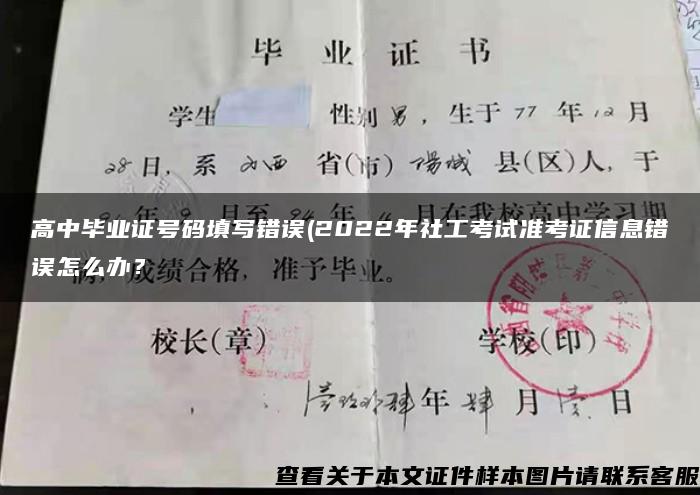 毕业证书
学生 性别男，生于77年12月
28日，系山西省(市)陽城县(区)人，于
年9月至94年 月在我校高中学习期
高中毕业证号码填写错误(2022年社工考试准考证信息错
误怎么办？
满，成绩合格，准予毕业。
校长(章) 学校(印)
年肆月壹日
查看关于本文证件样本图片请联系客服